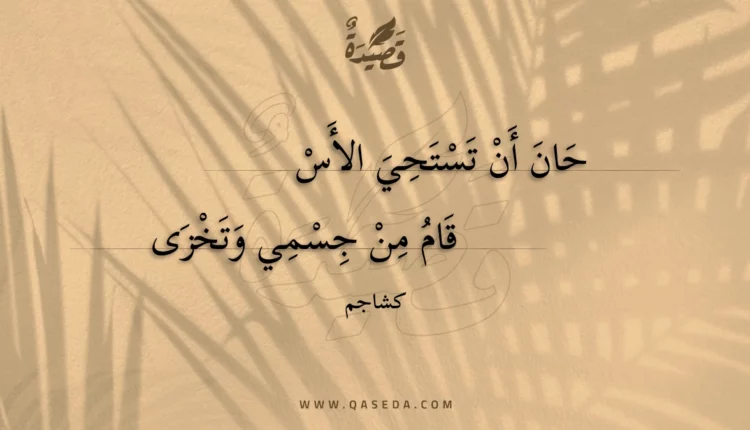 قَصِيْدَةٌ
حَانَ أَنْ تَسْتَحِيَ الأَسْ
قَامُ مِنْ جِسْمِي وَتَخْزَى
كشاجم
WWW.QASEDA.COM